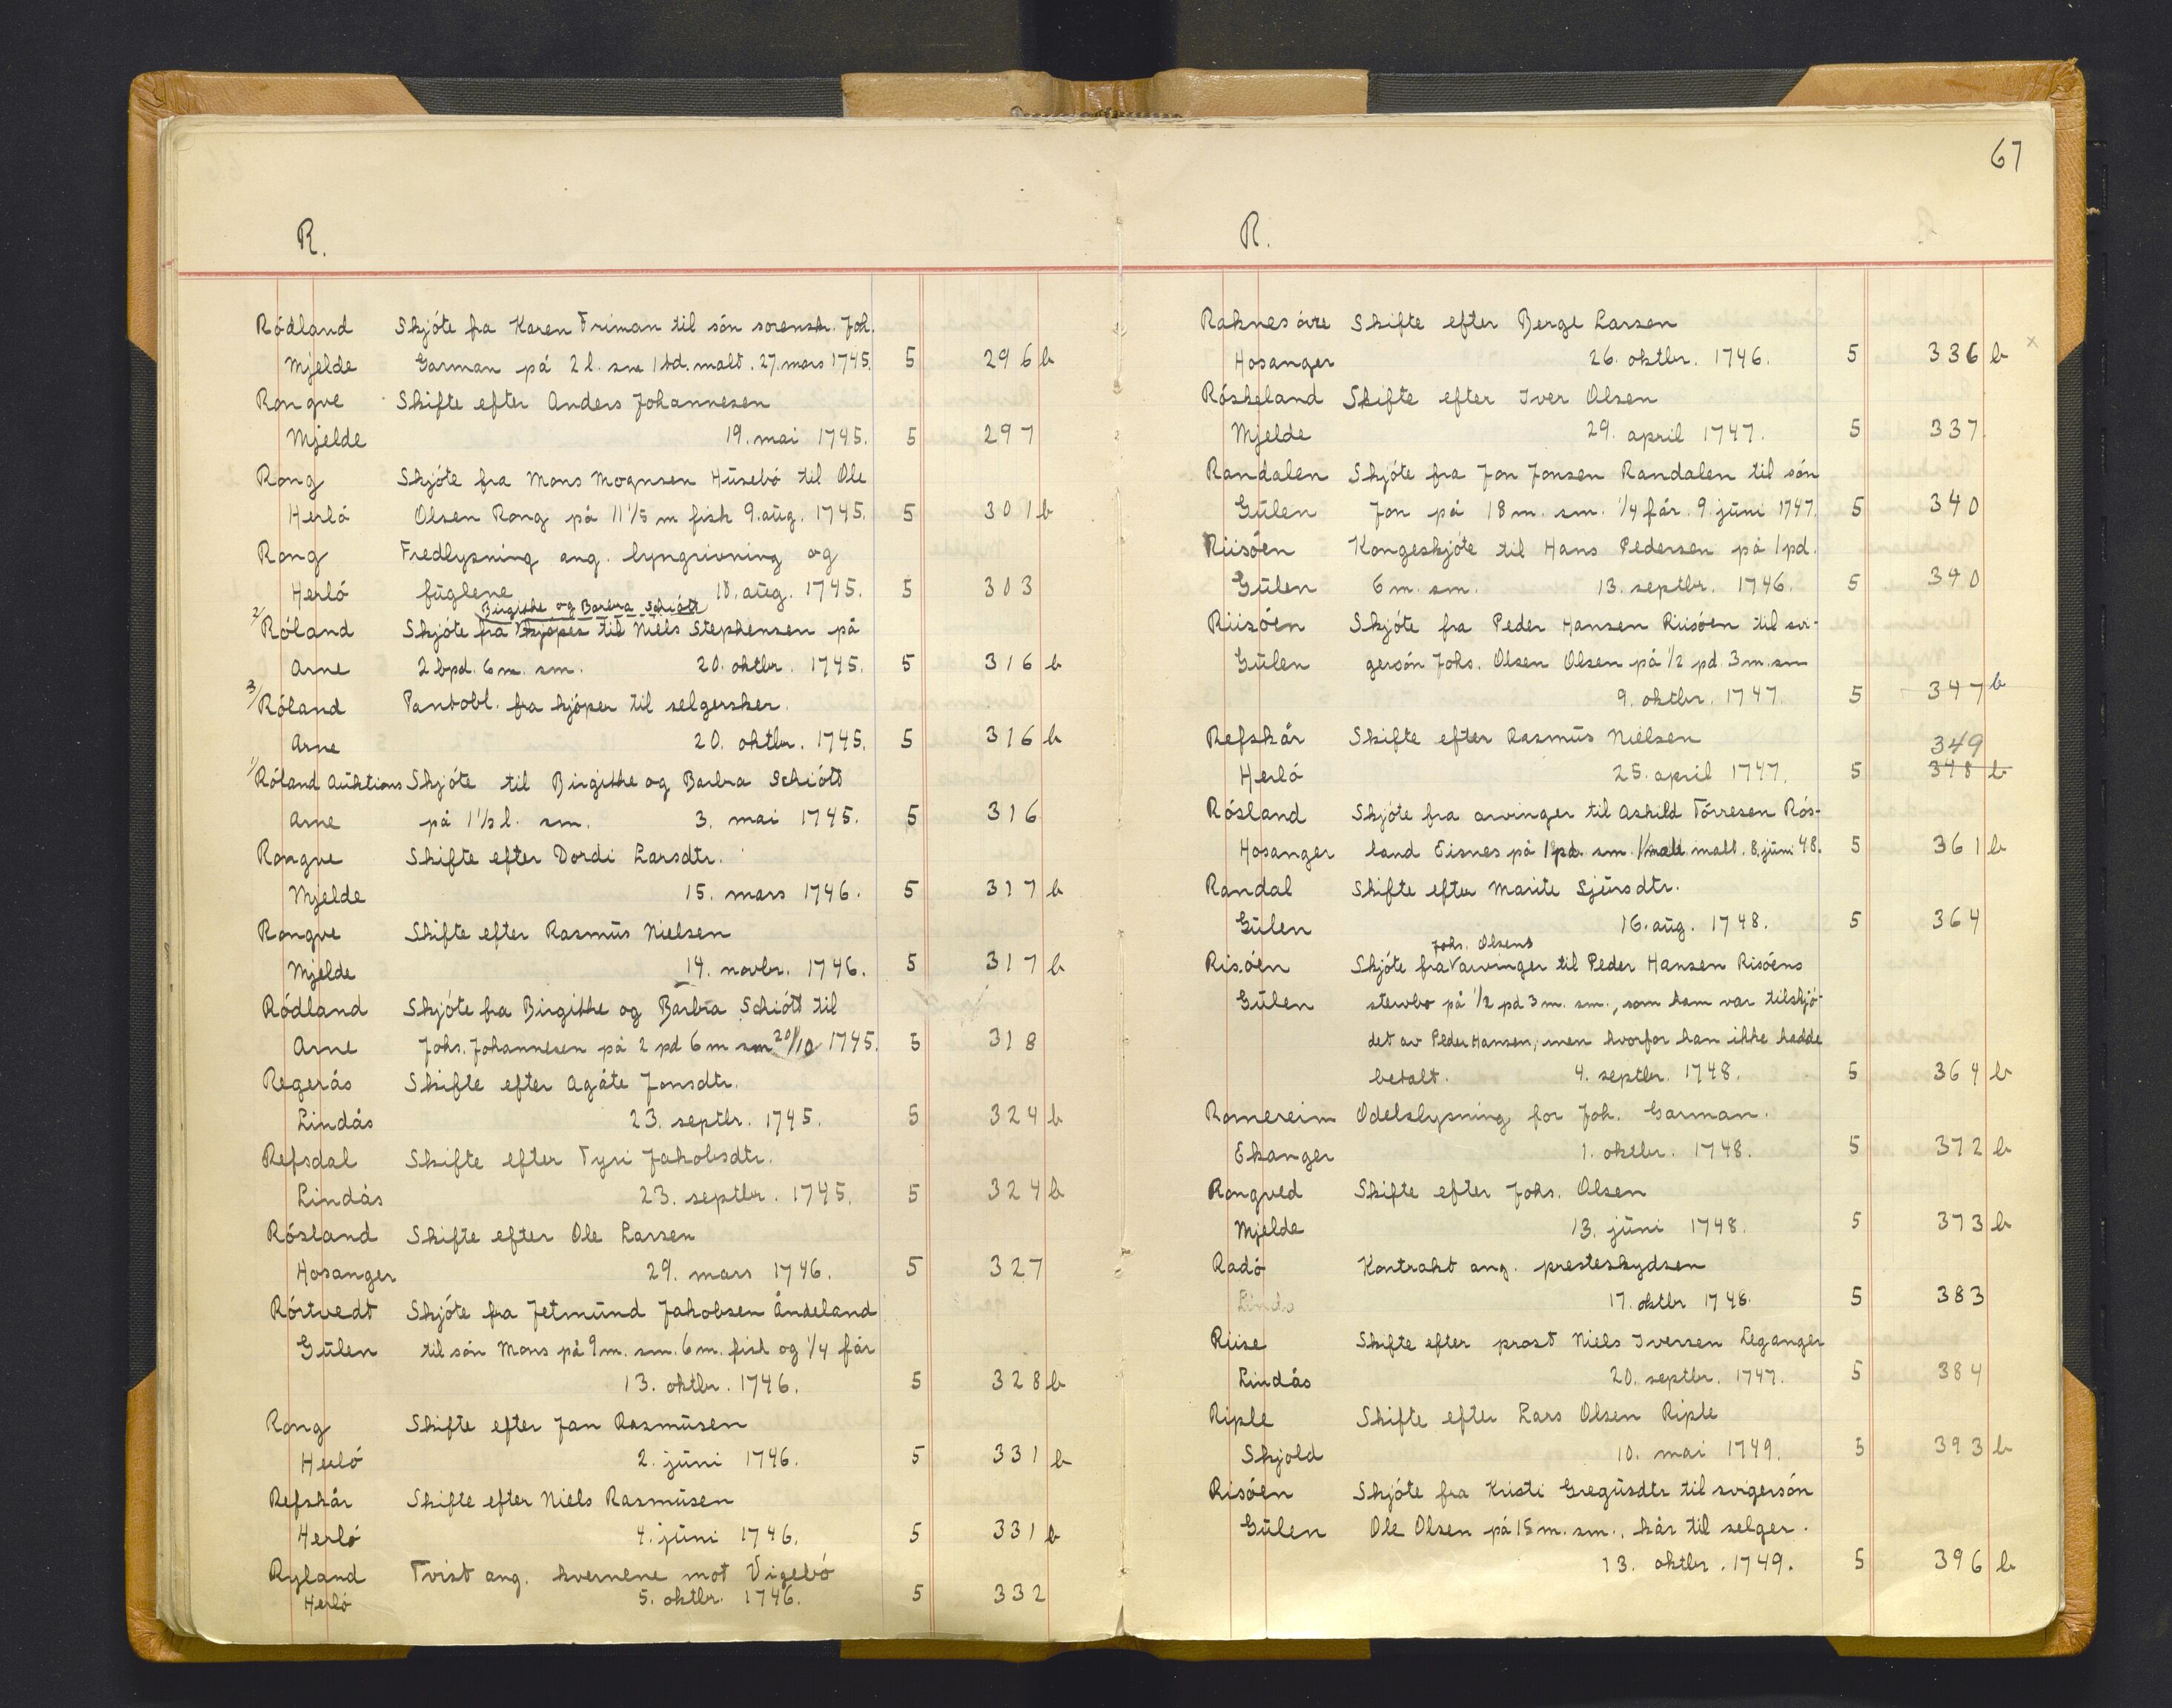 R.
Ródland Skjóte fra Karen Friman til són sorenskr. Joh.
Mjelde Garman på 2 l. sm 1 td. malt. 27. mars 1745. 5 296 b
Rongve Skifte efter Anders Johannesen
Mjelde 19. mai 1745. 5 297
Rong Skjóte fra Mons Mognsen Húsebó til Ole
Herló Olsen Rong på 11 1/5 m fisk 9. aúg. 1745. 5 301 b
Rong Fredlysning ang. lyngrivning og
Herló fúglene 10. aúg. 1745. 5 303
Birgithe og Barbra Schiótt
2/ Róland Skjóte fra kjóper til Niels Stephensen på
Arne 2 bpd. 6 m. sm. 20. oktbr. 1745. 5 316 b
3/ Róland Pantobl. fra kjóper til selgersker.
Arne 20. oktbr. 1745. 5 316 b
1/ Róland Aúktions Skjóte til Birgithe og Barbra Schiótt
Arne på 1 1/2 l. sm. 3. mai 1745. 5 316
Rongve Skifte efter Dordi Larsdtr.
Mjelde 15. mars 1746. 5 317 b
Rongve Skifte efter Rasmús Nielsen
Mjelde 14. novbr. 1746. 5 317 b
Ródland Skjóte fra Birgithe og Barbra Schiótt til
Arne Johs. Johannesen på 2 pd 6 m sm 20/10 1745. 5 318
Regerås Skifte efter Agåte Jonsdtr.
Lindås 23. septbr. 1745. 5 324 b
Refsdal Skifte efter Tyri Jakobsdtr.
Lindås 23. septbr. 1745. 5 324 b
Rósland Skifte efter Ole Larsen
Hosanger 29. mars 1746. 5 327
Rórtvedt Skjóte fra Jetmúnd Jakobsen Åndeland
Gúlen til són Mons på 9 m. sm. 6 m. fisk og 1/4 får
13. oktbr. 1746. 5 328 b
Rong Skifte efter Jan Rasmúsen
Herló 2. júni 1746. 5 331 b
Refskår Skifte efter Niels Rasmúsen
Herló 4. júni 1746. 5 331 b
Ryland Tvist ang. kvernene mot Vigebó
Herló 5. oktbr. 1746. 5 332
67
R.
Raknes óvre Skifte efter Berge Larsen
Hosanger 26. oktbr. 1746. 5 336 b x
Róskeland Skifte efter Iver Olsen
Mjelde 29. april 1747. 5 337
Randalen Skjóte fra Jon Jonsen Randalen til són
Gúlen Jon på 18 m. sm. 1/4 får. 9. júni 1747. 5 340
Riisóen Kongeskjóte til Hans Pedersen på 1 pd.
Gúlen 6 m. sm. 13. septbr. 1746. 5 340
Riisóen Skjóte fra Peder Hansen Riisóen til svi-
Gúlen gersón Johs. Olsen Olsen på 1/2 pd. 3 m. sm
9. oktbr. 1747. 5 347 b
Refskår Skifte efter Rasmús Nielsen 349
Herló 25. april 1747. 5 348 b
Rósland Skjóte fra arvinger til Askild Tórresen Rós-
Hosanger land Eisnes på 1 pd. sm. malt. 8. júni 48. 5 361 b
Randal Skifte efter Marite Sjúrsdtr.
Gúlen 16. aúg. 1748. 5 364
Johs. Olsens
Risóen Skjóte fra arvinger til Peder Hansen Risóens
Gúlen stervbo på 1/2 pd 3 m. sm., som ham var tilskjó-
det av Peder Hansen, men hvorfor han ikke hadde
betalt. 4. septbr. 1748. 5 364 b
Romereim Odelslysning for Joh. Garman.
Ekanger 1. oktbr. 1748. 5 372 b
Rongved Skifte efter Johs. Olsen
Mjelde 13. júni 1748. 5 373 b
Radó Kontrakt ang. presteskydsen
17. oktbr 1748. 5 383
Riise Skifte efter prost Niels Iversen Leganger
Lindås 20. septbr. 1747. 5 384
Riple Skifte efter Lars Olsen Riple
Skjold 10. mai 1749. 5 393 b
Risóen Skjóte fra Kristi Gregúsdtr til svigersón
Gúlen Ole Olsen på 15 m. sm., kår til selger.
13. oktbr. 1749. 5 396 b